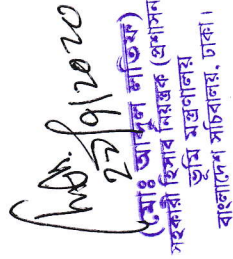 ২১/৭/২০২০
(মোঃ আব্দুল লতিফ)
সহকারী হিসাব নিয়ন্ত্রক (প্রশাসন
ভূমি মন্ত্রণালয়
বাংলাদেশ সচিবালয়, ঢাকা।